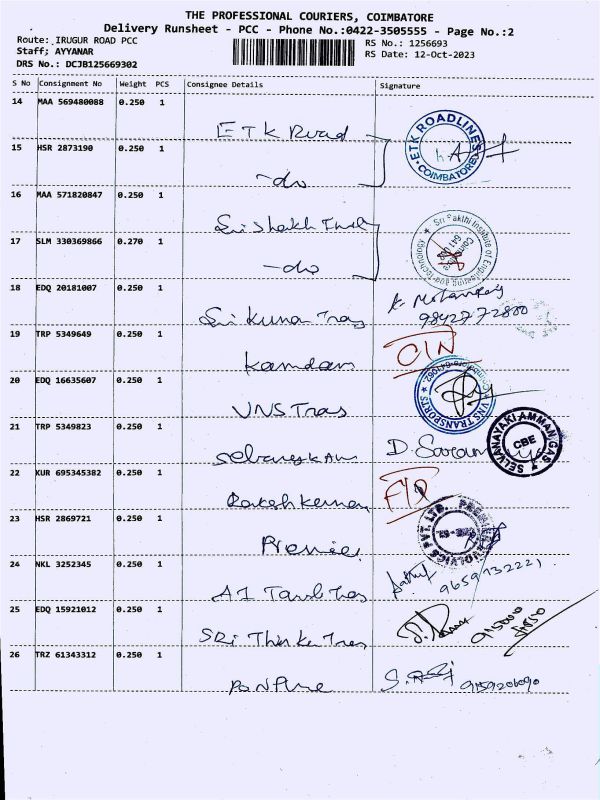 THE PROFESSIONAL COURIERS, COIMBATORE
Delivery Runsheet - PCC - Phone No.:0422-3505555 - Page No.:2
Route: IRUGUR ROAD PCC
Staff; AYYANAR
DRS No.: DCJB125669302
RS No.: 1256693
RS Date: 12-Oct-2023
S No Consignment No Weight PCS Consignee Details Signature
14 MAA 569480088 0.250 1
ETK Road
ETK ROADLINES
COIMBATORE
15 HSR 2873190 0.250 1
-do
16 MAA 571820847 0.250 1
Sri Shakthi
Sri Sakthi Institute of Engineering and Technology
17 SLM 330369866 0.270 1
-do
18 EDQ 20181007 0.250 1
Sri Kumar Trans
19 TRP 5349649 0.250 1
Kamdam
20 EDQ 16635607 0.250 1
VNS Tras
VNS TRANSPORTS
21 TRP 5349823 0.250 1
D. Saran
SELVANAYAKI AMMAN GAS
CBE
22 KUR 695345382 0.250 1
Rakesh Kumar
23 HSR 2869721 0.250 1
Premier
PVT. LTD.
24 NKL 3252345 0.250 1
A1
9659132221
25 EDQ 15921012 0.250 1
SRi
26 TRZ 61343312 0.250 1
9159206090